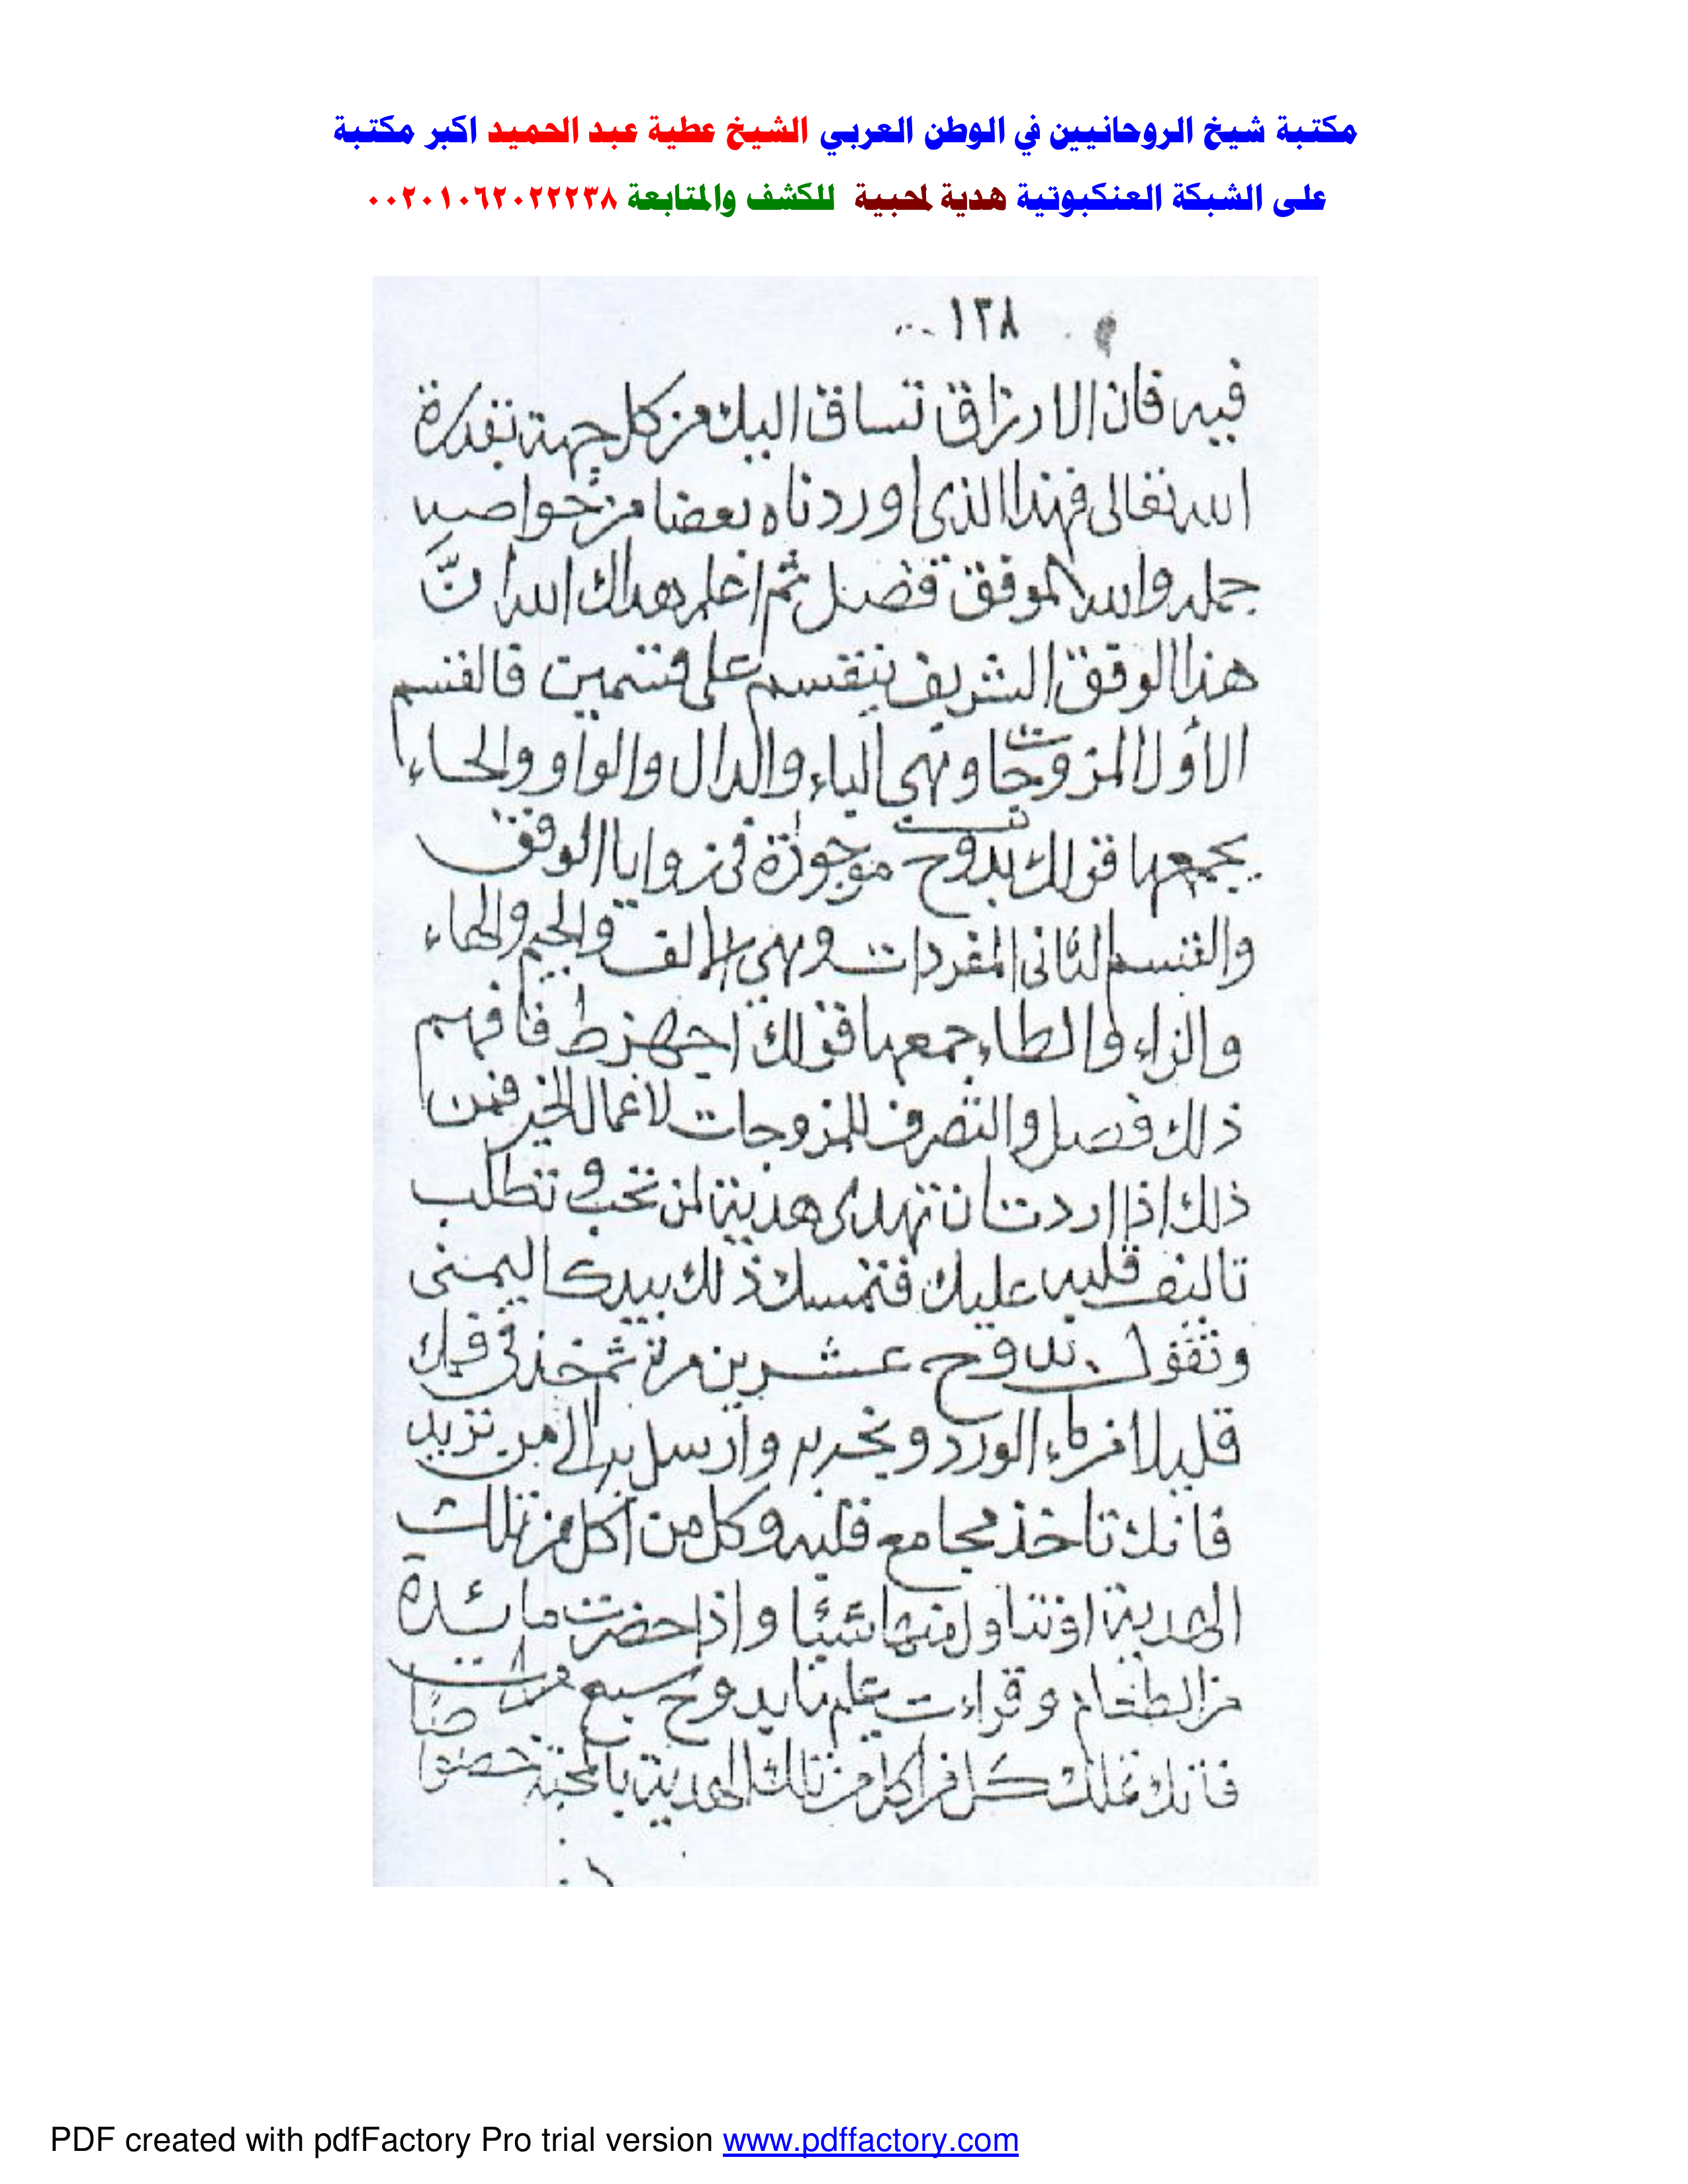 مكتبة شيخ الروحانيين في الوطن العربي الشيخ عطية عبد الحميد اكبر مكتبة
على الشبكة العنكبوتية هدية لمحبية للكشف والمتابعة ٠٠٢٠١٠٦٢٠٢٢٢٣٨
١٣٨
فيه فان الارزاق تساق اليك من كل جهة بقدرة
الله تعالى فهذا الذى اوردناه بعضا من خواصه
جمله والله الموفق فصل ثم اعلم هداك الله انَّ
هذا الوفق الشريف ينقسم على قسمين فالقسم
الأول المزوجات وهى الباء والدال والواو والحاء
يجمعها قولك بدوح موجودة فى زوايا الوفق
والقسم الثانى المفردات وهى الالف والجيم والهاء
والزاء والطاء جمعها قولك اجهزط فافهم
ذلك فصل والتصرف للمزوجات لاعمال الخير فمن
ذلك اذا اردت ان تهدى هدية لمن تحب وتطلب
تاليف قلبه عليك فتمسك ذلك بيدك اليمنى
وتقول بدوح عشرين مرة ثم خذ فى فيك
قليلا من ماء الورد و به وارسل به الى من تريد
فانك تاخذ مجامع قلبه وكل من اكل من تلك
الهدية او تناول منها شيئا واذا حضرت مائدة
من الطعام وقراءت عليها بدوح سبع مرات
فانك تملك كل من اكل من تلك الهدية بالمحبة خصوصًا
PDF created with pdfFactory Pro trial version www.pdffactory.com